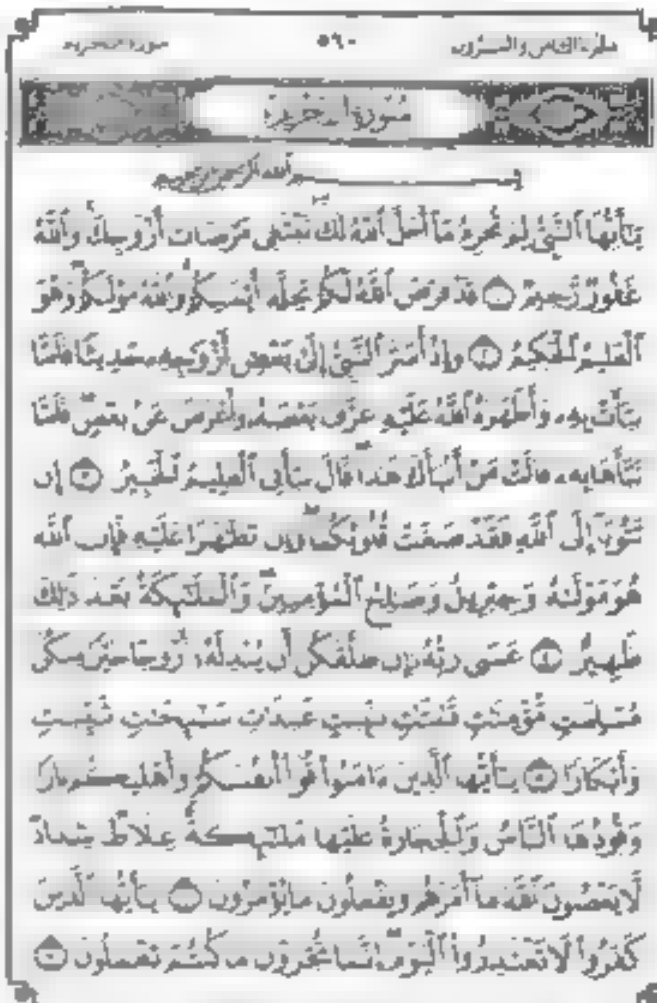 سورة التحريم ٥٦٠ الجزء الثامن والعشرون
سورة التحريم
بسم الله الرحمن الرحيم
يَٰٓأَيُّهَا ٱلنَّبِيُّ لِمَ تُحَرِّمُ مَآ أَحَلَّ ٱللَّهُ لَكَۖ تَبْتَغِي مَرْضَاتَ أَزْوَٰجِكَۚ وَٱللَّهُ
غَفُورٞ رَّحِيمٞ ١ قَدْ فَرَضَ ٱللَّهُ لَكُمْ تَحِلَّةَ أَيْمَٰنِكُمْۚ وَٱللَّهُ مَوْلَىٰكُمْۖ وَهُوَ
ٱلْعَلِيمُ ٱلْحَكِيمُ ٢ وَإِذْ أَسَرَّ ٱلنَّبِيُّ إِلَىٰ بَعْضِ أَزْوَٰجِهِۦ حَدِيثٗا فَلَمَّا
نَبَّأَتْ بِهِۦ وَأَظْهَرَهُ ٱللَّهُ عَلَيْهِ عَرَّفَ بَعْضَهُۥ وَأَعْرَضَ عَنۢ بَعْضٖۖ فَلَمَّا
نَبَّأَهَا بِهِۦ قَالَتْ مَنْ أَنۢبَأَكَ هَٰذَاۖ قَالَ نَبَّأَنِيَ ٱلْعَلِيمُ ٱلْخَبِيرُ ٣ إِن
تَتُوبَآ إِلَى ٱللَّهِ فَقَدْ صَغَتْ قُلُوبُكُمَاۖ وَإِن تَظَٰهَرَا عَلَيْهِ فَإِنَّ ٱللَّهَ
هُوَ مَوْلَىٰهُ وَجِبْرِيلُ وَصَٰلِحُ ٱلْمُؤْمِنِينَۖ وَٱلْمَلَٰٓئِكَةُ بَعْدَ ذَٰلِكَ
ظَهِيرٌ ٤ عَسَىٰ رَبُّهُۥٓ إِن طَلَّقَكُنَّ أَن يُبْدِلَهُۥٓ أَزْوَٰجًا خَيْرٗا مِّنكُنَّ
مُسْلِمَٰتٖ مُّؤْمِنَٰتٖ قَٰنِتَٰتٖ تَٰٓئِبَٰتٍ عَٰبِدَٰتٖ سَٰٓئِحَٰتٖ ثَيِّبَٰتٖ
وَأَبْكَارٗا ٥ يَٰٓأَيُّهَا ٱلَّذِينَ ءَامَنُوا۟ قُوٓا۟ أَنفُسَكُمْ وَأَهْلِيكُمْ نَارٗا
وَقُودُهَا ٱلنَّاسُ وَٱلْحِجَارَةُ عَلَيْهَا مَلَٰٓئِكَةٌ غِلَاظٞ شِدَادٞ
لَّا يَعْصُونَ ٱللَّهَ مَآ أَمَرَهُمْ وَيَفْعَلُونَ مَا يُؤْمَرُونَ ٦ يَٰٓأَيُّهَا ٱلَّذِينَ
كَفَرُوا۟ لَا تَعْتَذِرُوا۟ ٱلْيَوْمَۖ إِنَّمَا تُجْزَوْنَ مَا كُنتُمْ تَعْمَلُونَ ٧